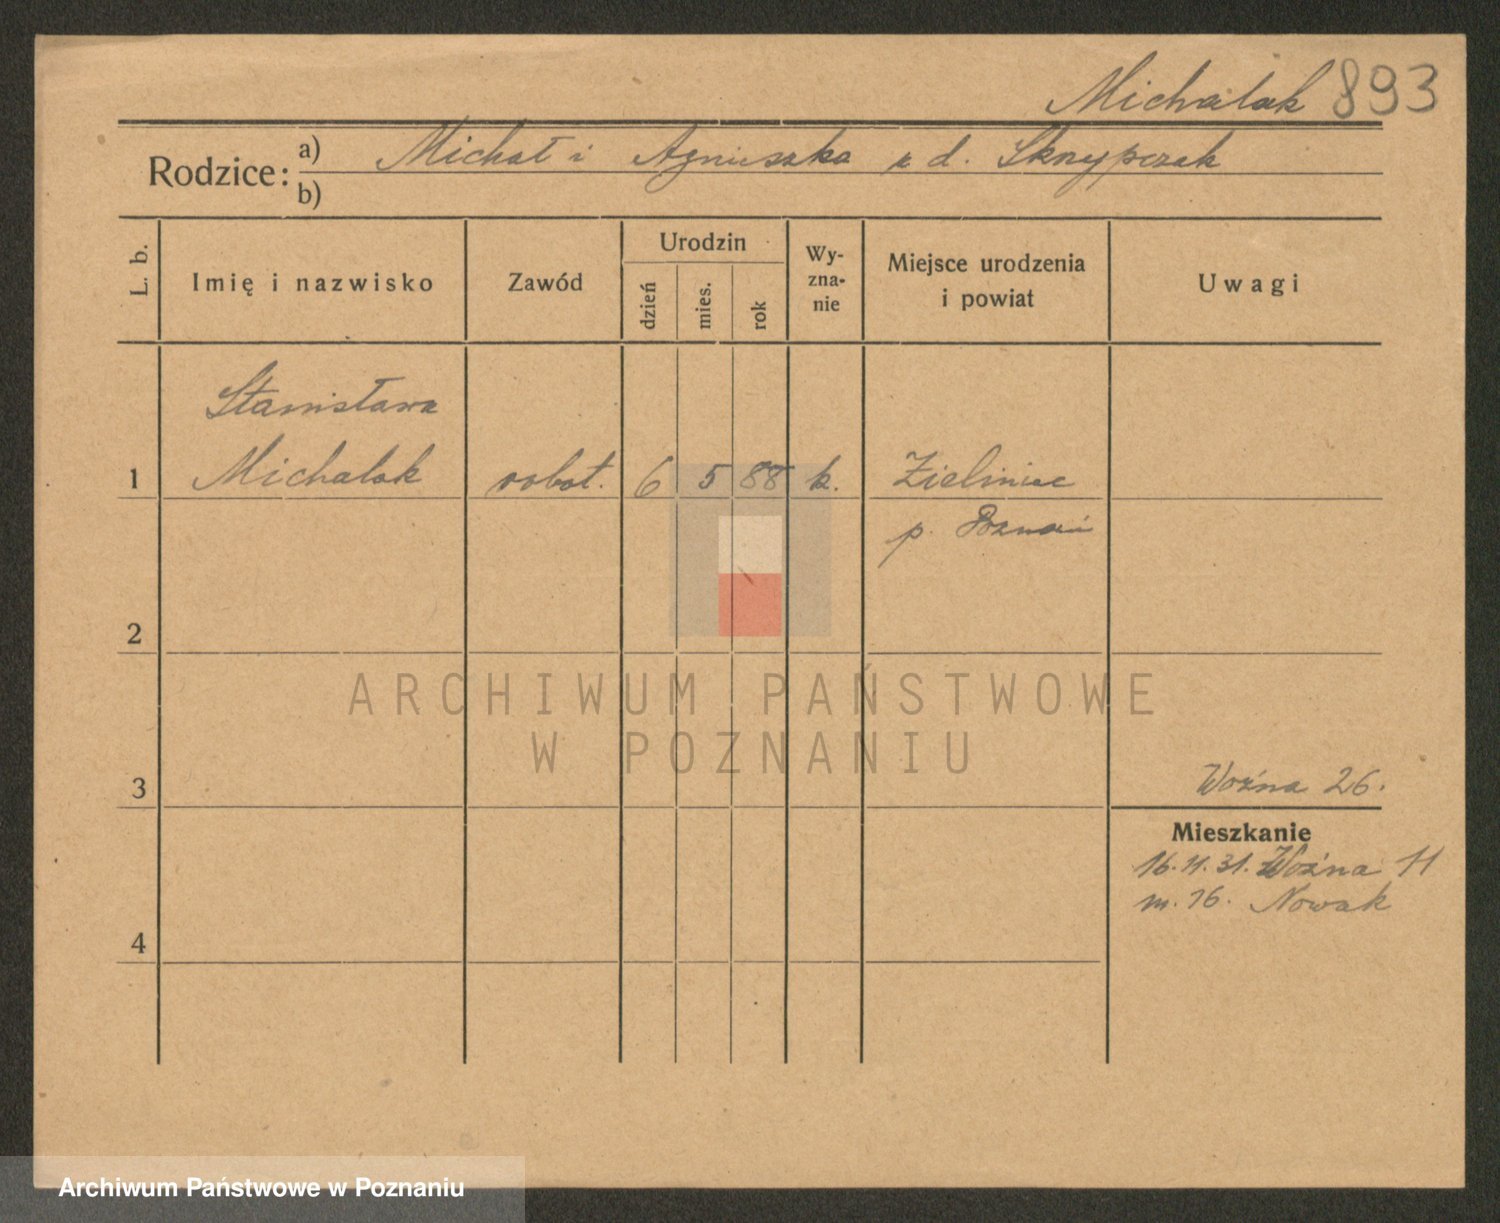 Michalak 893
Rodzice: a) Michał i Agnieszka z d. Skrzypczak
b)
L. b.
Imię i nazwisko
Zawód
Urodzin
dzień
mies.
rok
Wy-
zna-
nie
Miejsce urodzenia
i powiat
Uwagi
Stanisława
1 Michalak robot. 6 5 88 k. Zieliniec
p. Poznań
2
ARCHIWUM PAŃSTWOWE
W POZNANIU
3 Woźna 26.
Mieszkanie
16.11.31. Woźna 11
m. 16. Nowak
4
Archiwum Państwowe w Poznaniu